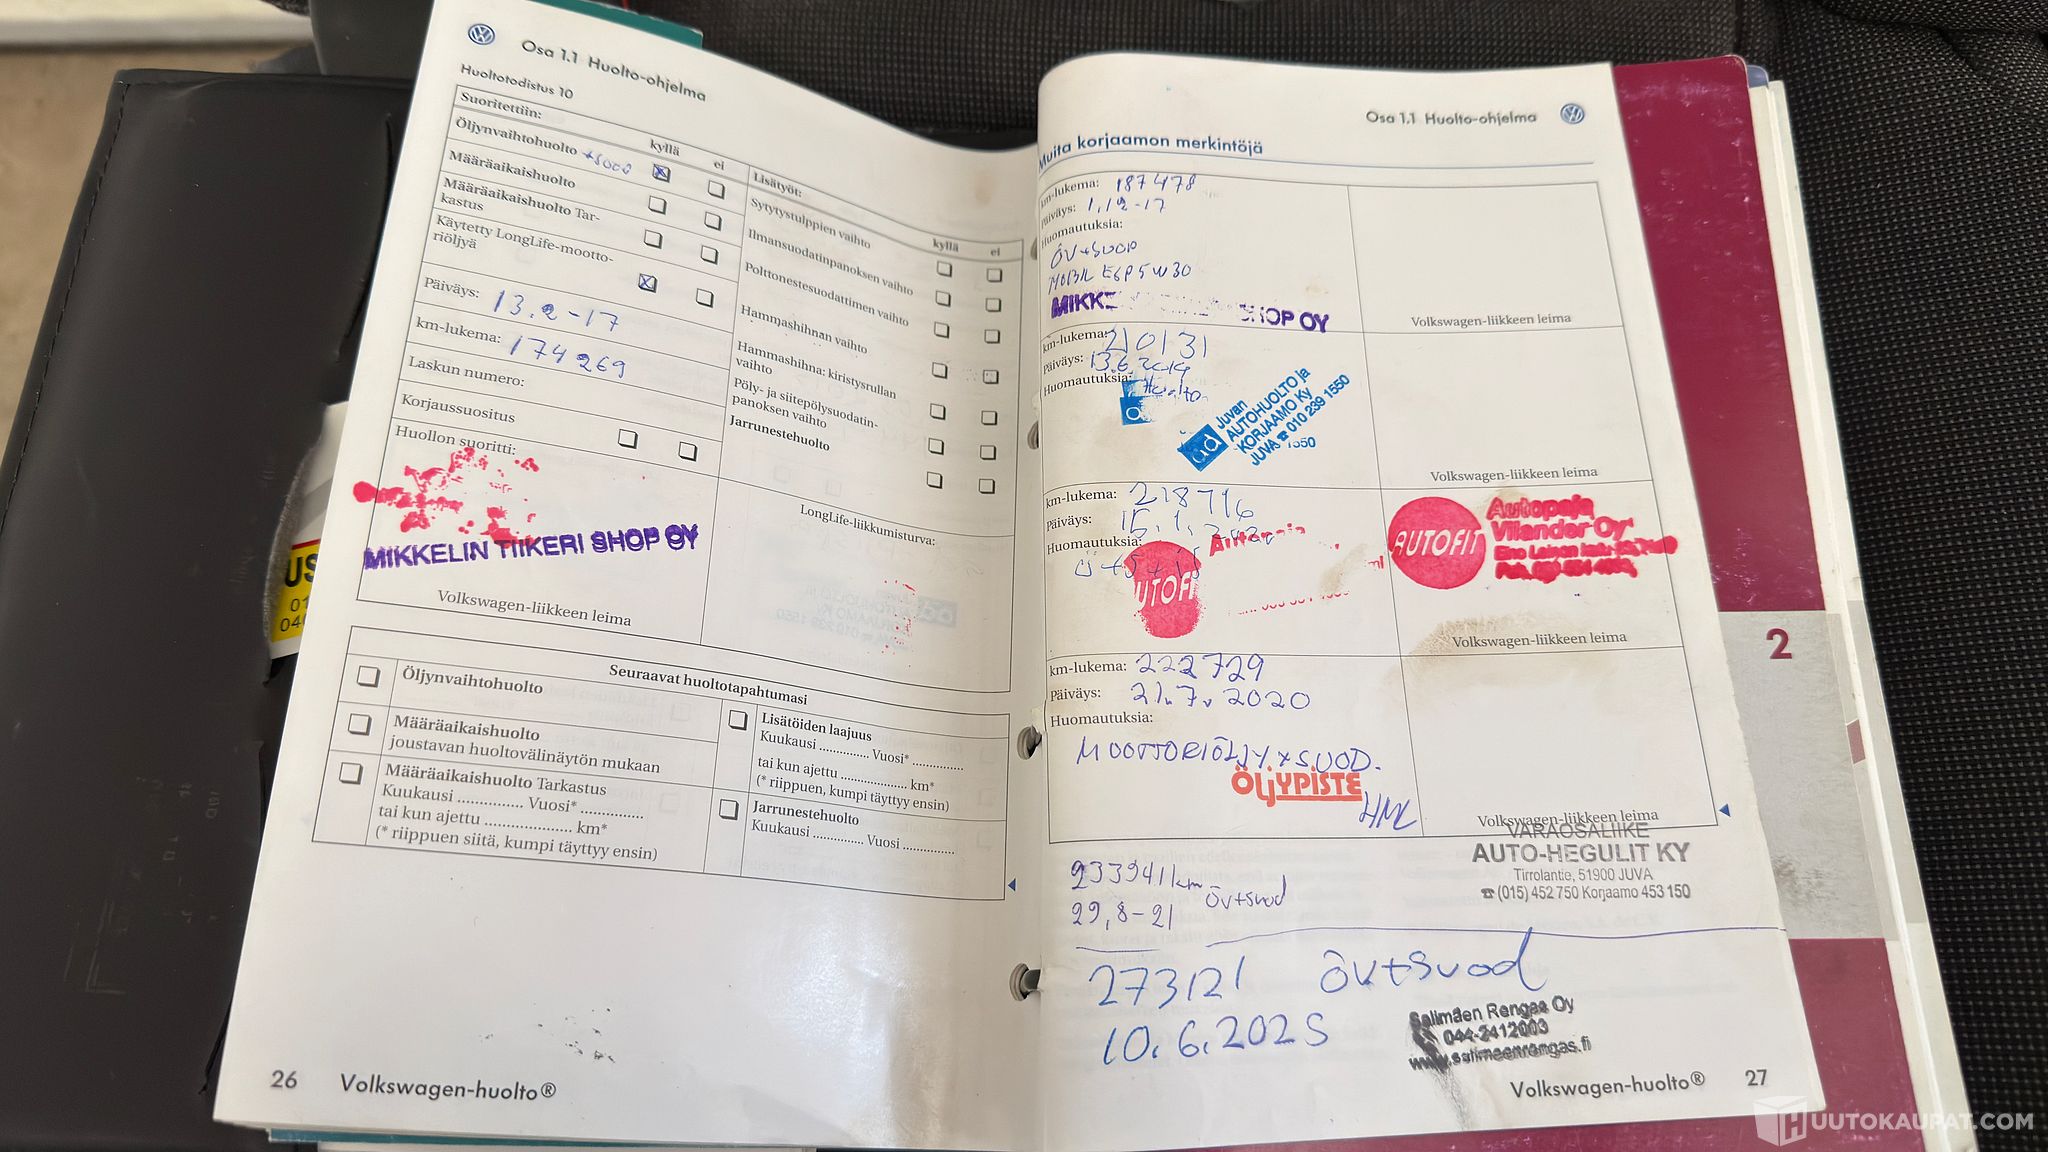 Osa 1.1 Huolto-ohjelma
Huoltotodistus 10
Suoritettiin:
kyllä ei
Öljynvaihtohuolto +suod
Määräaikaishuolto
Määräaikaishuolto Tar-
kastus
Käytetty LongLife-mootto-
riöljyä
Päiväys: 13.2-17
km-lukema: 174269
Laskun numero:
Korjaussuositus
Huollon suoritti:
MIKKELIN TIIKERI SHOP OY
Volkswagen-liikkeen leima
Lisätyöt:
kyllä ei
Sytytystulppien vaihto
Ilmansuodatinpanoksen vaihto
Polttonestesuodattimen vaihto
Hammashihnan vaihto
Hammashihna: kiristysrullan
vaihto
Pöly- ja siitepölysuodatin-
panoksen vaihto
Jarrunestehuolto
LongLife-liikkumisturva:
Seuraavat huoltotapahtumasi
Öljynvaihtohuolto
Määräaikaishuolto
joustavan huoltovälinäytön mukaan
Määräaikaishuolto Tarkastus
Kuukausi ............... Vuosi* ..............
tai kun ajettu .................... km*
(* riippuen siitä, kumpi täyttyy ensin)
Lisätöiden laajuus
Kuukausi ............. Vuosi* .............
tai kun ajettu ..................... km*
(* riippuen, kumpi täyttyy ensin)
Jarrunestehuolto
Kuukausi ............. Vuosi .............
26 Volkswagen-huolto®
Osa 1.1 Huolto-ohjelma
Muita korjaamon merkintöjä
km-lukema: 187478
Päiväys: 1.12-17
Huomautuksia:
ÖV+SUOD
MOBIL ESP 5W30
SHOP OY
Volkswagen-liikkeen leima
km-lukema: 210131
Päiväys: 13.6.2019
Huomautuksia: Huolto
ad Juvan
AUTOHUOLTO ja
KORJAAMO Ky
JUVA ☎ 010 239 1550
Volkswagen-liikkeen leima
km-lukema: 218716
Päiväys: 15.1.
Huomautuksia:
AUTOFIT
Autopaja
Vilander Oy
Volkswagen-liikkeen leima
km-lukema: 222729
Päiväys: 21.7.2020
Huomautuksia:
MOOTTORIÖLJY+SUOD.
ÖLJYPISTE
HML
Volkswagen-liikkeen leima
VARAOSALIIKE
AUTO-HEGULIT KY
Tirrolantie, 51900 JUVA
☎ (015) 452 750 Korjaamo 453 150
233941km övtsuod
29,8-21
273121 övtsuod
10.6.2025
Salimäen Rengas Oy
044-2412003
www.salimaenrengas.fi
Volkswagen-huolto® 27
2
HUUTOKAUPAT.COM